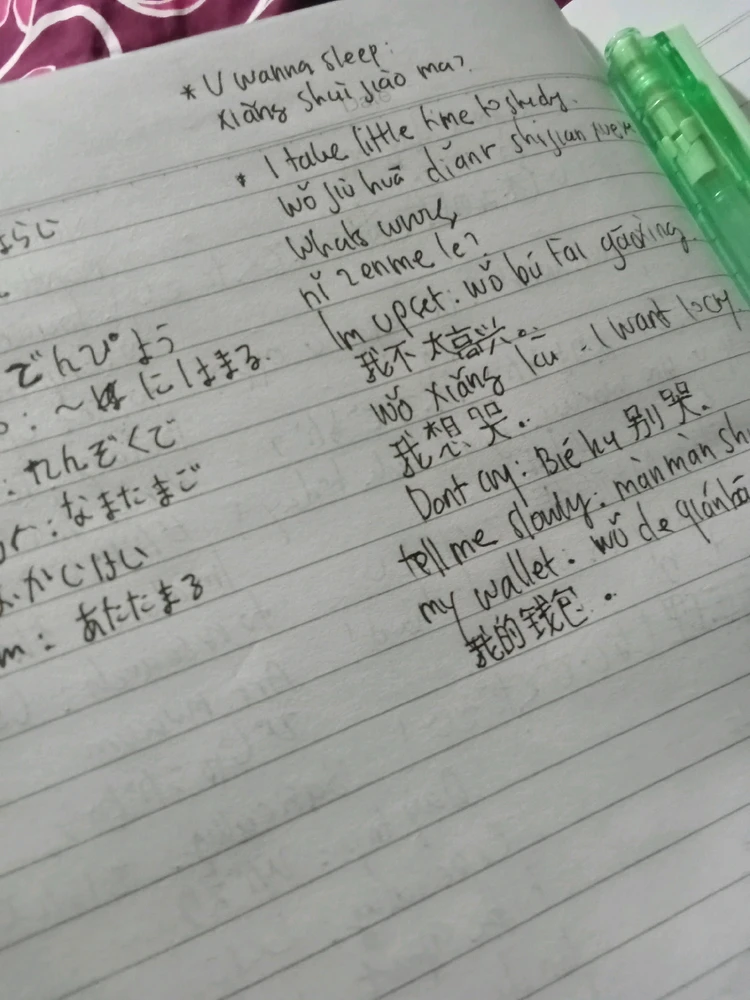 * U wanna sleep:
xiǎng shuì jiào ma?
* I take little time to study.
wǒ jiù huā diǎnr shijian
whats wrong
nǐ zenme le?
Im upset: wǒ bú tai gāoxìng.
我不太高兴。
wǒ xiǎng kū - I want to cry
我想哭.
Dont cry: Bié ku 别哭.
tell me slowly: mànmàn shu
my wallet: wǒ de qiánbā
我的钱包.
でんぴょう
: ~ はにはまる.
: れんぞくで
: なまたまご
: あたたまる